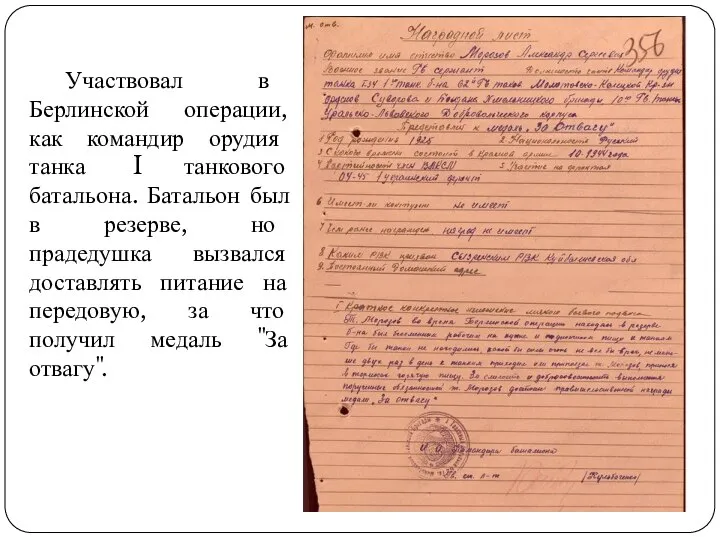 Участвовал в
Берлинской операции,
как командир орудия
танка I танкового
батальона. Батальон был
в резерве, но
прадедушка вызвался
доставлять питание на
передовую, за что
получил медаль "За
отвагу".
Наградной лист
356
Фамилия имя отчество Морозов Александр Сергеевич
Воинское звание Гв сержант Должность часть Командир орудия
танка Т34 1 танк б-на 62 Гв танков Молотовско-Келецкой Кр-зн
орденов Суворова и Богдана Хмельницкого бригады 10 Гв. танк
Уральско-Львовского Добровольческого корпуса
Представлен к медаль "За Отвагу"
1 Год рождения 1925 2. Национальность Русский
3 С какого времени состоит в Красной армии 10-1944 года
4 Партийность член ВЛКСМ 5 Участие на фронтах
04-45 1 украинский фронт
6 Имеет ли контузии не имеет
7 Чем ранее награжден наград не имеет
8 Каким РВК призван Сызренским РВК Куйбышевская обл
9. Постоянный Домашний адрес
I Краткое конкретное изложение личного боевого подвига
Т. Морозов во время Берлинской операции находясь в резерве
б-на был рабочим на кухне и пищу к танкам
Где бы танки не находились, какой бы силы огонь не вел бы враг, не
два раз в день к танкам приходил или приползал т. Морозов, принося
в термосе горячую пищу. За смелость и добросовестность выполнения
порученных обязанностей т. Морозов достоин правительственной награды
медали "За отвагу"
Командира батальона
Гв. ст. л-т